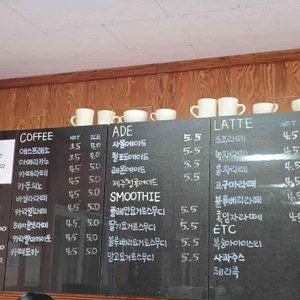 다.
COFFEE HOT ICE
에스프레소 3.5 4.0
아메리카노 3.5 4.0
카페라떼 4.5 5.0
카푸치노 4.5 5.0
바닐라라떼 4.5 5.0
카라멜라떼 4.5 5.0
헤이즐넛라떼 4.5 5.0
카라멜마끼아또 4.5 5.0
카페모카 4.5 5.0
ADE
자몽에이드 5.5
청포도에이드 5.5
레몬에이드 5.5
제주청귤에이드 5.5
SMOOTHIE
플레인요거트스무디 5.5
딸기요거트스무디 5.5
블루베리요거트스무디 5.5
망고요거트스무디 5.5
LATTE HOT
초코라떼 4.5
녹차라떼
홍차라떼
고구마라떼
블루베리라떼
ETC
복숭아아이스티
사과주스
페리콜